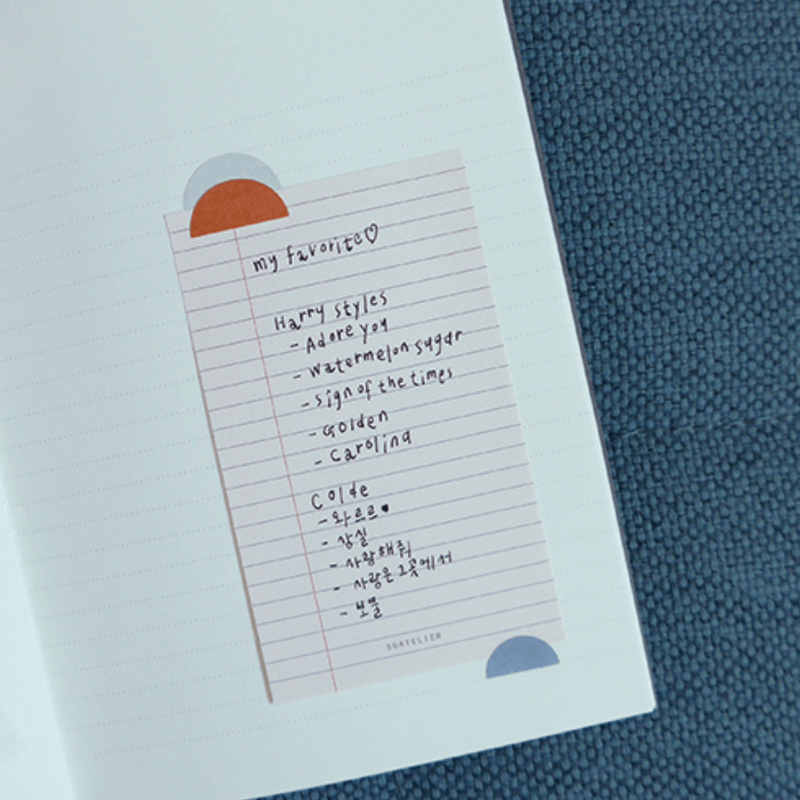 my favorite♡
Harry styles
- Adore you
- watermelon sugar
- sign of the times
- Golden
- Carolina
Colde
- 와르르
- 상실
- 사랑해줘
- 사랑은 그곳에서
- 보물
SUATELIER